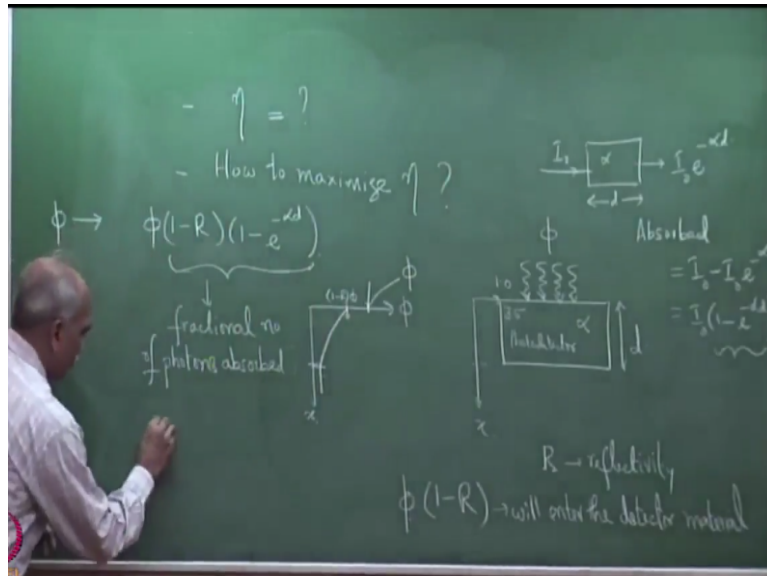 - η = ?
- How to maximise η ?
ϕ → ϕ(1-R)(1-e^-αd)
fractional no
of photons absorbed
(1-R)ϕ
ϕ
ϕ
x
I₀ α → I₀e^-αd
←d→
Absorbed
= I₀-I₀e^-α
= I₀(1-e^-αd
ϕ
1.0
3.5 α
Photodetector
d
x
R → reflectivity
ϕ(1-R) → will enter the detector material